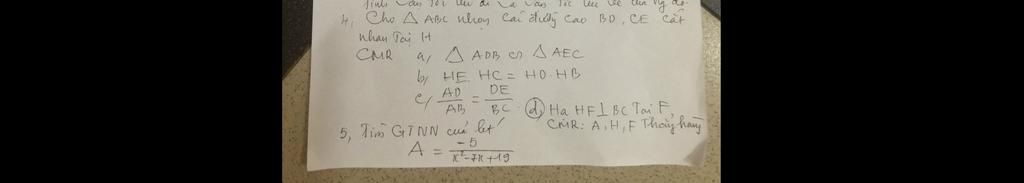 4, Cho △ ABC nhọn các đường cao BD, CE cắt
nhau Tại H
CMR a, △ ADB ∽ △ AEC
b, HE. HC = HD. HB
c, AD/AB = DE/BC. d, Hạ HF ⊥ BC Tại F,
CMR: A, H, F Thẳng hàng
5, Tìm GTNN của bt
A = -5/(x²-7x+19)